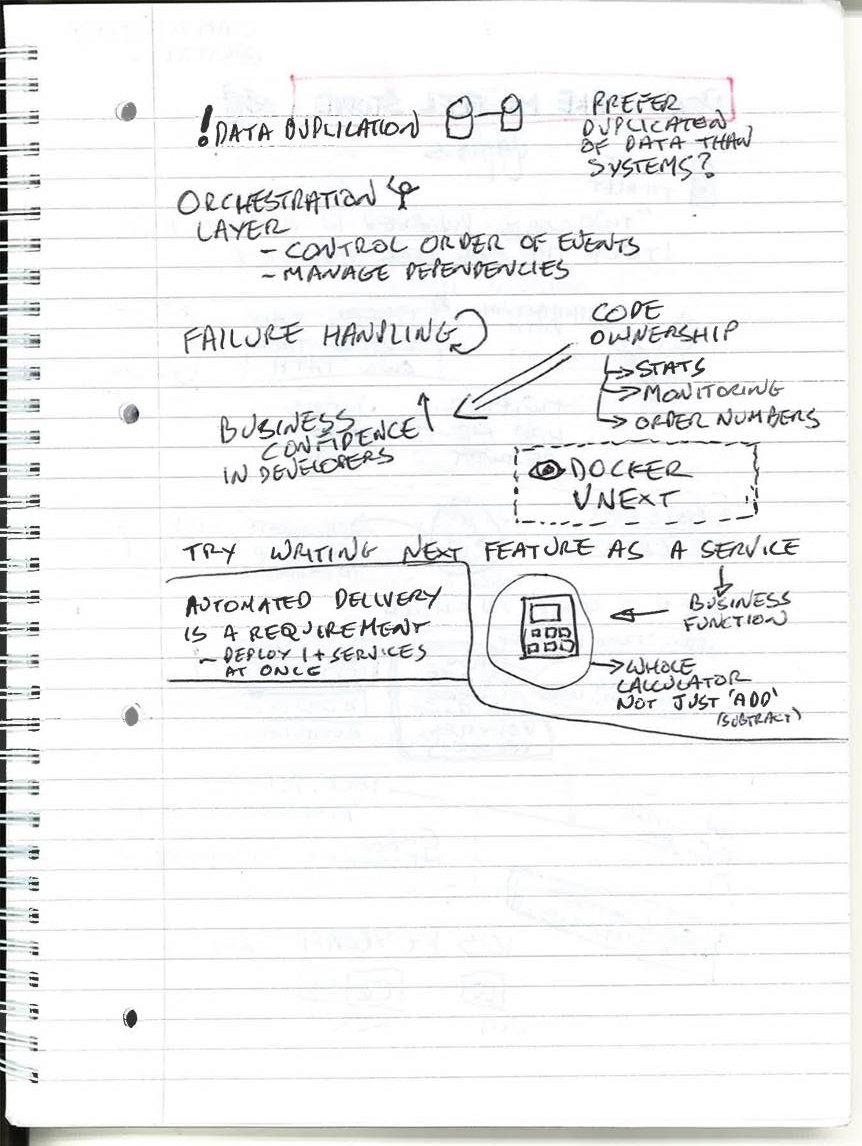 ! DATA DUPLICATION
PREFER
DUPLICATION
OF DATA THAN
SYSTEMS?
ORCHESTRATION
LAYER
- CONTROL ORDER OF EVENTS
- MANAGE DEPENDENCIES
FAILURE HANDLING
CODE
OWNERSHIP
→ STATS
→ MONITORING
→ ORDER NUMBERS
BUSINESS
CONFIDENCE
IN DEVELOPERS
DOCKER
VNEXT
TRY WRITING NEXT FEATURE AS A SERVICE
AUTOMATED DELIVERY
IS A REQUIREMENT
- DEPLOY 1+ SERVICES
AT ONCE
BUSINESS
FUNCTION
→ WHOLE
CALCULATOR
NOT JUST 'ADD'
(SUBTRACT)